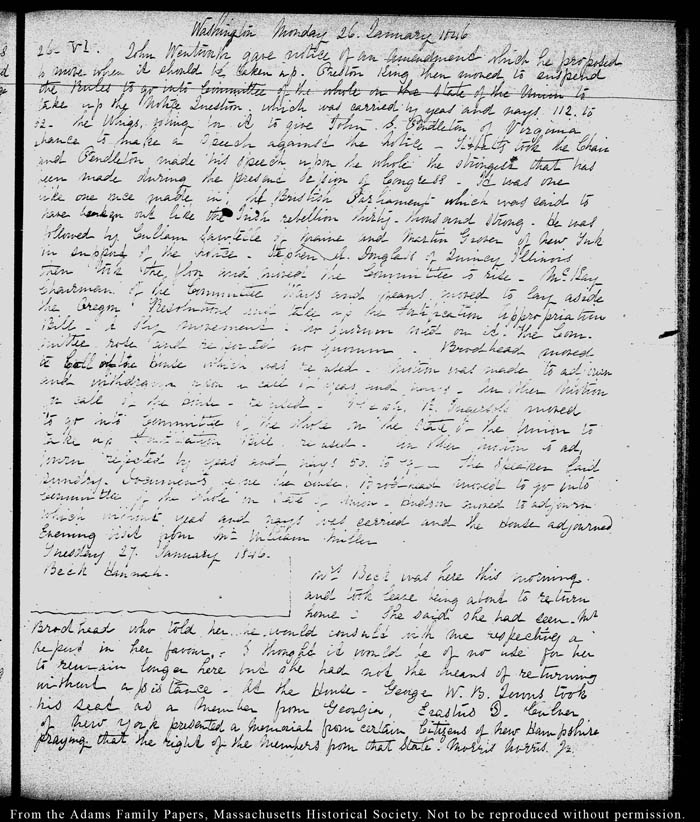 Washington Monday 26. January 1846
26. VI. John Wentworth gave notice of an amendment which he proposed
to move when it should be taken up. Preston King then moved to suspend
the Rules to go into Committee of the whole on the state of the Union to
take up the Notice Question, which was carried by yeas and nays 112. to
the Whigs, joining in it to give John S. Pendleton of Virginia
chance to make a Speech against the Notice - Tibbatts took the Chair
and Pendleton made his speech upon the whole the strongest that has
been made during the present Session of Congress. It was one
like one once made in the British Parliament which was said to
have broken out like the Irish rebellion thirty thousand strong. He was
followed by Cullen Sawtelle of Maine and Martin Grover of New York
in support of the notice. Stephen A. Douglass of Quincy Illinois
then took the floor and moved the Committee to rise - McKay
Chairman of the Committee Ways and means moved to lay aside
the Oregon Resolutions and take up the Fortification appropriation
Bill - a sly movement - no quorum voted on it. the Com-
mittee rose and reported no quorum. Brodhead moved
a Call of the House which was refused. Motion was made to adjourn
and withdrawn upon a call of yeas and nays - Another Motion
for call of the House - refused. Ingersoll moved
to go into Committee of the whole on the State of the Union to
take up Fortification Bill refused - another motion to ad,
journ rejected by yeas and nays 50. to - the Speaker laid
sundry Documents before the House. Brodhead moved to go into
Committee of the whole on State of Union. moved to adjourn
which without yeas and nays was carried and the House adjourned
Evening visit from Mr William Miller
Tuesday 27. January 1846.
Beck Hannah.
Mrs Beck was here this morning
and took leave being about to return
home - She said she had seen Mr
Brodhead who told her he would consult with me respecting a
report in her favour, - I thought it would be of no use for her
to remain longer here but she had not the means of returning
without assistance. At the House - George W. B. Towns took
his seat as a member from Georgia. Erastus D. Culver
of New York presented a Memorial from certain Citizens of New Hampshire
praying that the right of the Members from that State. Moses Norris Jr.
From the Adams Family Papers, Massachusetts Historical Society. Not to be reproduced without permission.